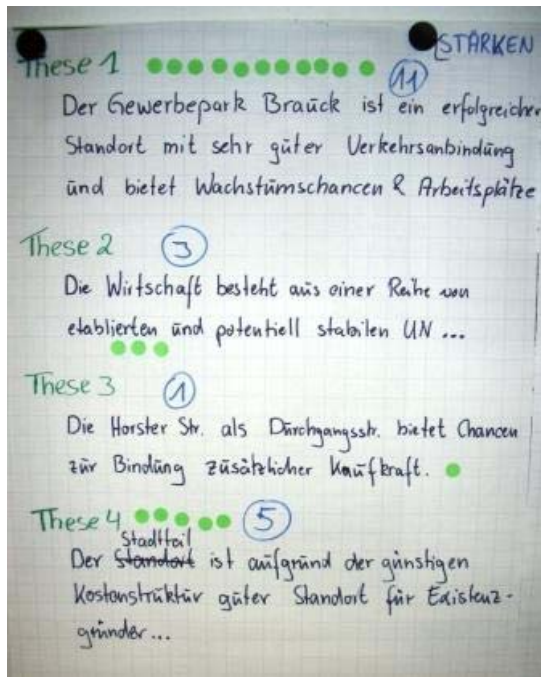 STÄRKEN
These 1 11
Der Gewerbepark Brauck ist ein erfolgreicher
Standort mit sehr guter Verkehrsanbindung
und bietet Wachstumschancen & Arbeitsplätze
These 2 3
Die Wirtschaft besteht aus einer Reihe von
etablierten und potentiell stabilen UN ...
These 3 1
Die Horster Str. als Durchgangsstr. bietet Chancen
zur Bindung zusätzlicher Kaufkraft.
These 4 5
Stadtteil
Der Standort ist aufgrund der günstigen
Kostenstruktur guter Standort für Existenz-
gründer ...